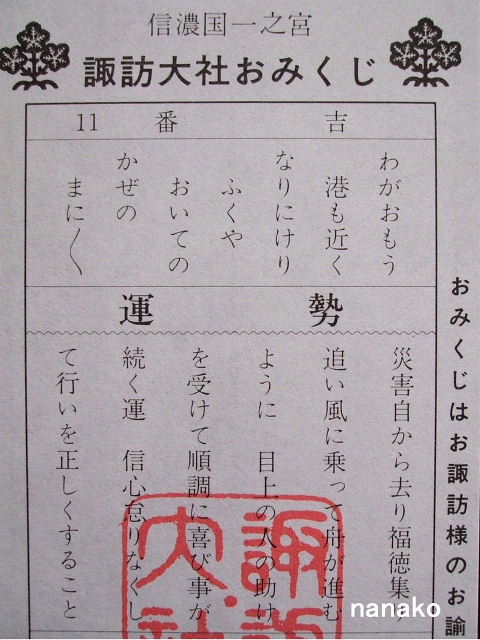 信濃国一之宮
諏訪大社おみくじ
11 番 吉
わがおもう
港も近く
なりにけり
ふくや
おいての
かぜの
まに〱
運勢
災害自から去り福徳集り
追い風に乗って舟が進む
ように 目上の人の助け
を受けて順調に喜び事が
続く運 信心怠りなくし
て行いを正しくすること
おみくじはお諏訪様のお諭
諏訪
大社
nanako